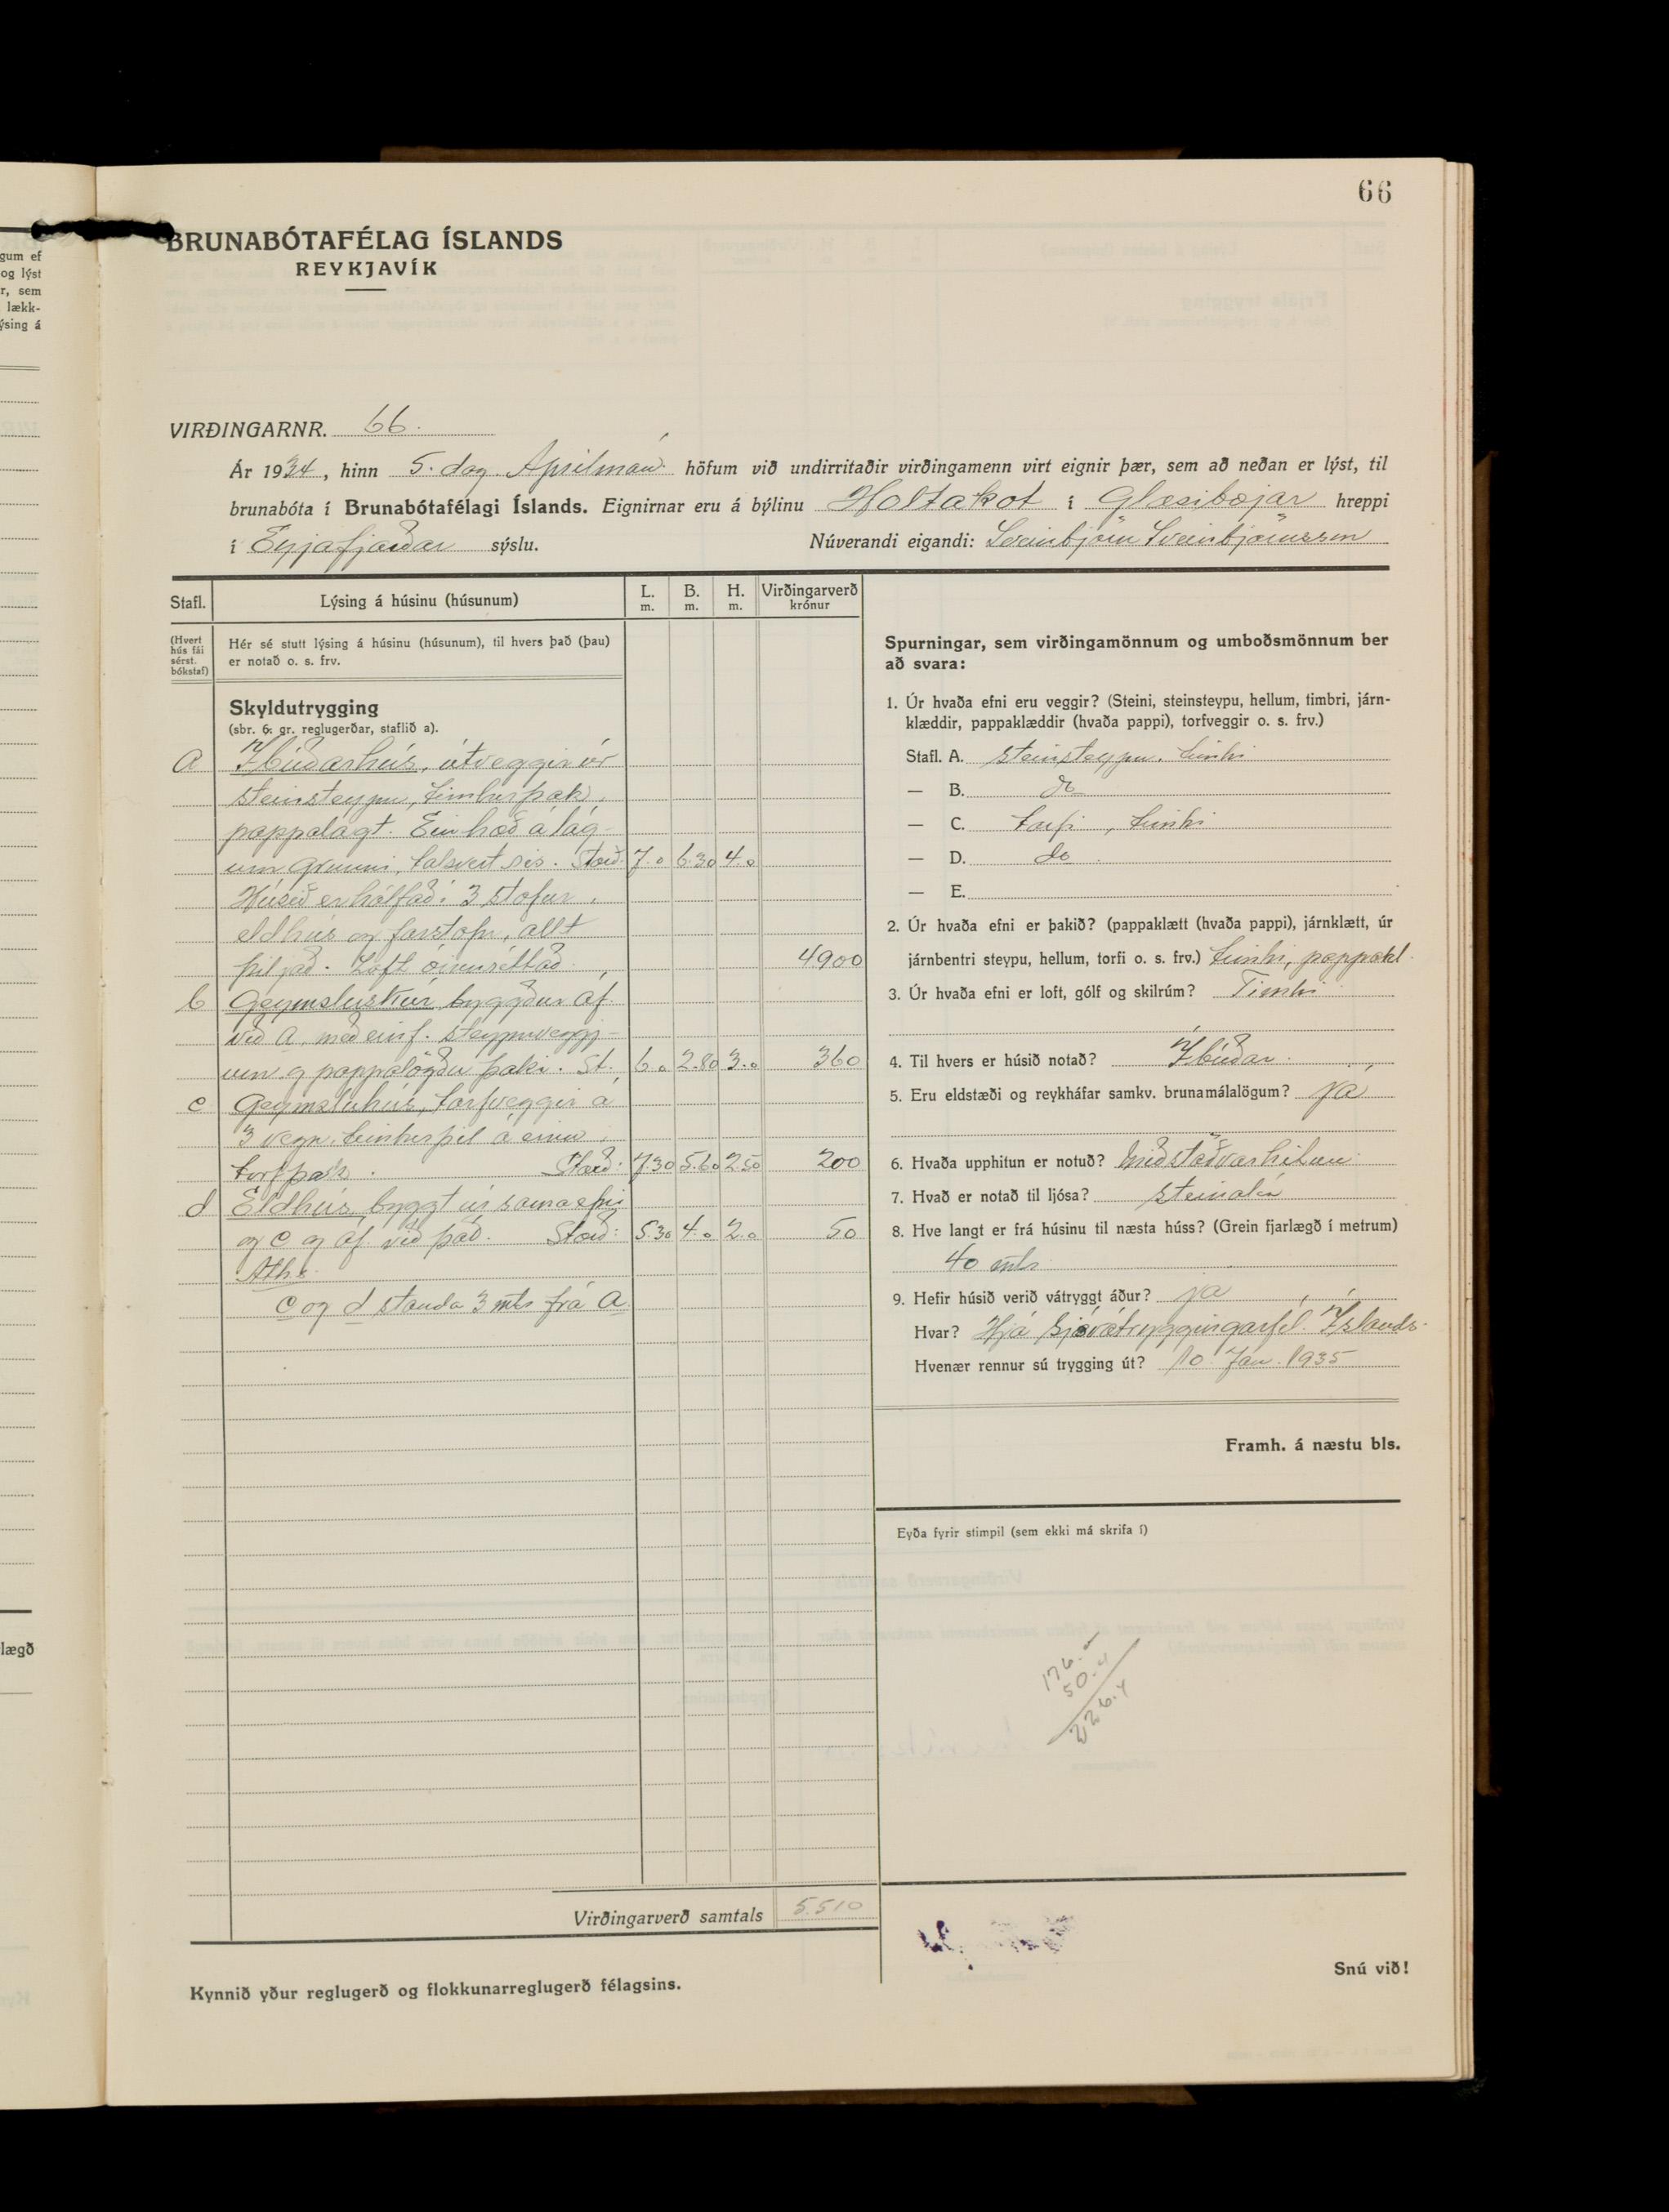 66
BRUNABÓTAFÉLAG ÍSLANDS
REYKJAVÍK
VIRÐINGARNR. 66.
Ár 1934, hinn 5. dag Aprílmán. höfum við undirritaðir virðingamenn virt eignir þær, sem að neðan er lýst, til
brunabóta í Brunabótafélagi Íslands. Eignirnar eru á býlinu Holtakot í Glæsibæjar hreppi
í Eyjafjarðar sýslu. Núverandi eigandi: Sveinbjörn Sveinbjörnsson
Stafl. Lýsing á húsinu (húsunum) L. m. B. m. H. m. Virðingarverð krónur
(Hvert hús fái sérst. bókstaf)
Hér sé stutt lýsing á húsinu (húsunum), til hvers það (þau)
er notað o. s. frv.
Skyldutrygging
(sbr. 6. gr. reglugerðar, staflið a).
a Íbúðarhús, útveggir úr
steinsteypu, timburþak,
pappalagt. Ein hæð á lág-
um grunni, talsvert ris. Stærð: 7.0 6.30 4.0
Húsið er hólfað í 3 stofur,
eldhús og forstofu, allt
þiljað. Loft óinnréttað. 4900
b Geymsluskúr, byggður af
við a, með einf. steypuveggj-
um og pappalögðu þaki. St. 6.0 2.80 3.0 360
c Geymsluhús, torfveggir á
3 vegu, timburþil á einn,
torfþak. Stærð: 7.30 5.60 2.50 200
d Eldhús, byggt úr sama efni
og c og áf. við það. Stærð: 5.30 4.0 2.0 50
Aths.
c og d standa 3 mtr frá a.
Virðingarverð samtals 5.510
Kynnið yður reglugerð og flokkunarreglugerð félagsins.
Spurningar, sem virðingamönnum og umboðsmönnum ber
að svara:
1. Úr hvaða efni eru veggir? (Steini, steinsteypu, hellum, timbri, járn-
klæddir, pappaklæddir (hvaða pappi), torfveggir o. s. frv.)
Stafl. A. steinsteypu, timbri
— B. do
— C. torfi, timbri
— D. do
— E.
2. Úr hvaða efni er þakið? (pappaklætt (hvaða pappi), járnklætt, úr
járnbentri steypu, hellum, torfi o. s. frv.) timbri, pappakl.
3. Úr hvaða efni er loft, gólf og skilrúm? Timbri
4. Til hvers er húsið notað? Íbúðar.
5. Eru eldstæði og reykháfar samkv. brunamálalögum? já
6. Hvaða upphitun er notuð? miðstöðvarhitun
7. Hvað er notað til ljósa? steinolía
8. Hve langt er frá húsinu til næsta húss? (Grein fjarlægð í metrum)
40 mtr.
9. Hefir húsið verið vátryggt áður? já
Hvar? Hjá Sjóvátryggingarfél. Íslands.
Hvenær rennur sú trygging út? 10. Jan. 1935
Framh. á næstu bls.
Eyða fyrir stimpil (sem ekki má skrifa í)
50.4
226.4
Snú við!
gum ef
og lýst
r, sem
lækk-
ýsing á
lægð